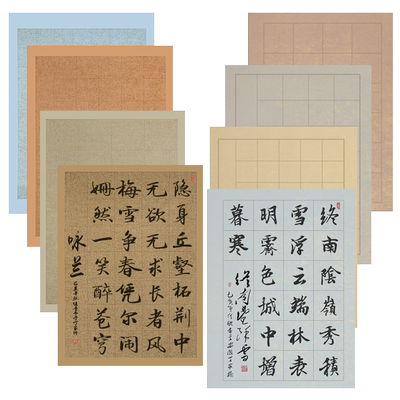 隐身丘壑柘荆中
无欲无求长者风
梅雪争春凭尔闹
姗然一笑醉苍穹
咏兰
終南陰嶺秀積
雪浮云端林表
明霽色城中增
暮寒